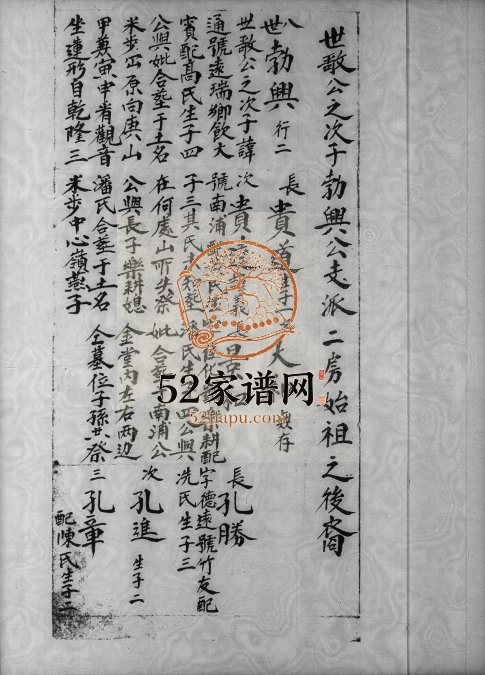 世敬公之次子勃興公支派二房始祖之後裔
八世 勃興 行二
世敬公之次子諱
通號遠瑞鄉飲大
賓配高氏生子四
公與妣合塟于土名
米步 原向庚山
甲兼寅申看觀音
坐蓮形自乾隆三
長 貴道 生子一
次 貴
號南浦配
子三其氏
在何處山所失祭
公與長子樂耕媳
潘氏合塟于土名
米步中心嶺燕子
大 存
樂耕配
氏生子四公與
妣合塟 南浦公
金堂內左右兩边
仝墓位子孫共祭
長 孔勝
字德遠號竹友配
冼氏生子三
次 孔進 生子二
三 孔章
配陳氏生子二
52家谱网
52jiapu.com